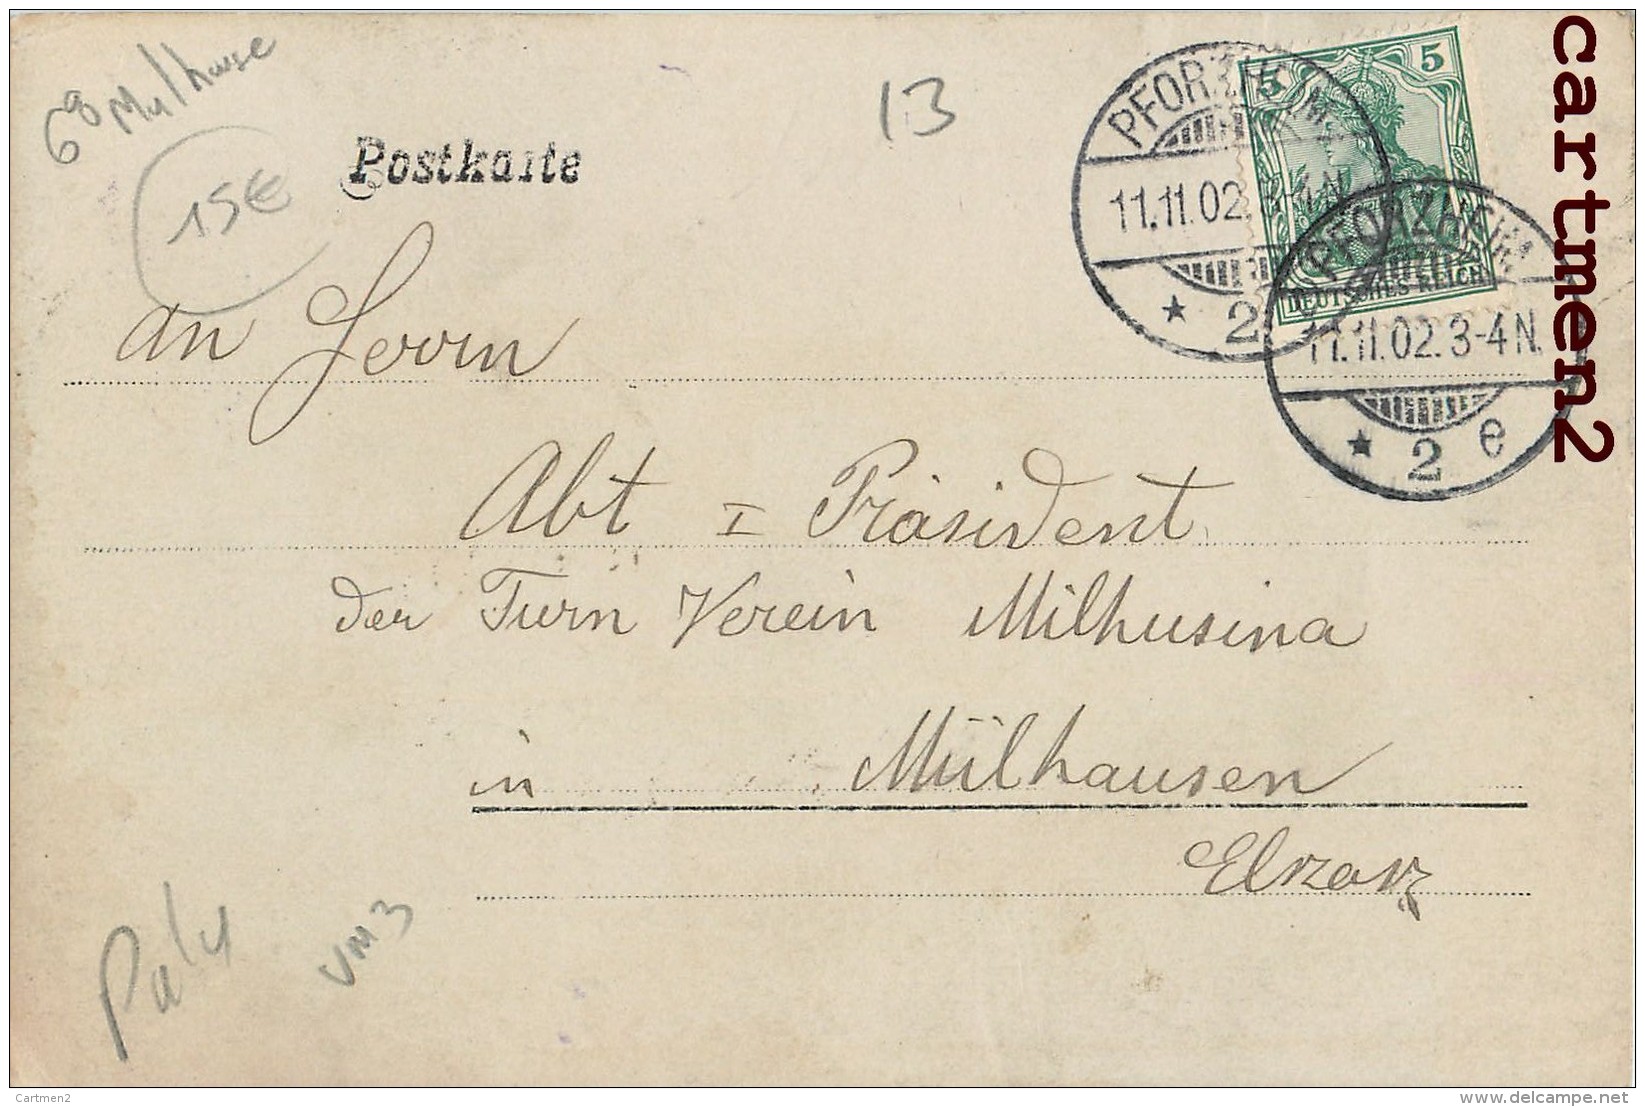 68 Mulhouse
15€
Postkarte
13
PFORZHEIM
11.11.02. 3-4 N.
* 2
5 5
DEUTSCHES REICH
PFORZHEIM
11.11.02. 3-4 N.
* 2 e
cartmen2
an Herrn
Abt I Präsident
der Turn Verein Milhusina
in Mülhausen
Elsass
VM3
Cartmen2
delcampe.net